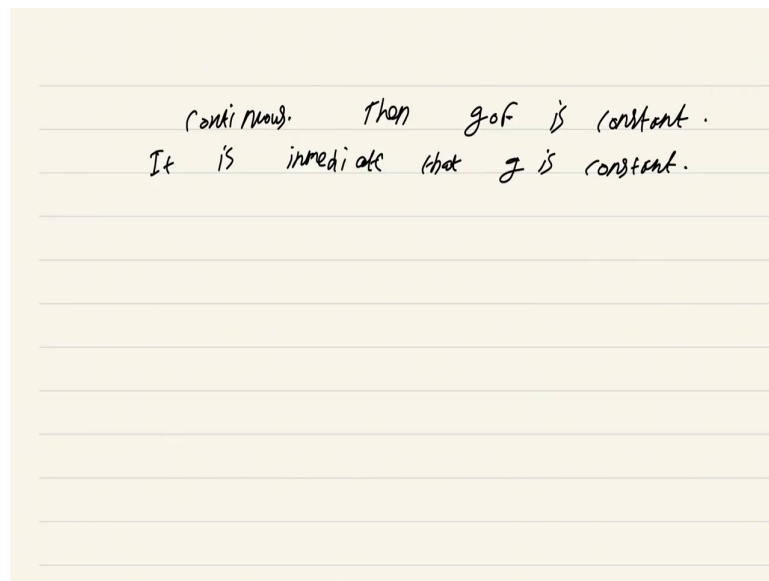 continuous. Then gof is constant.
It is inmediate that g is constant.